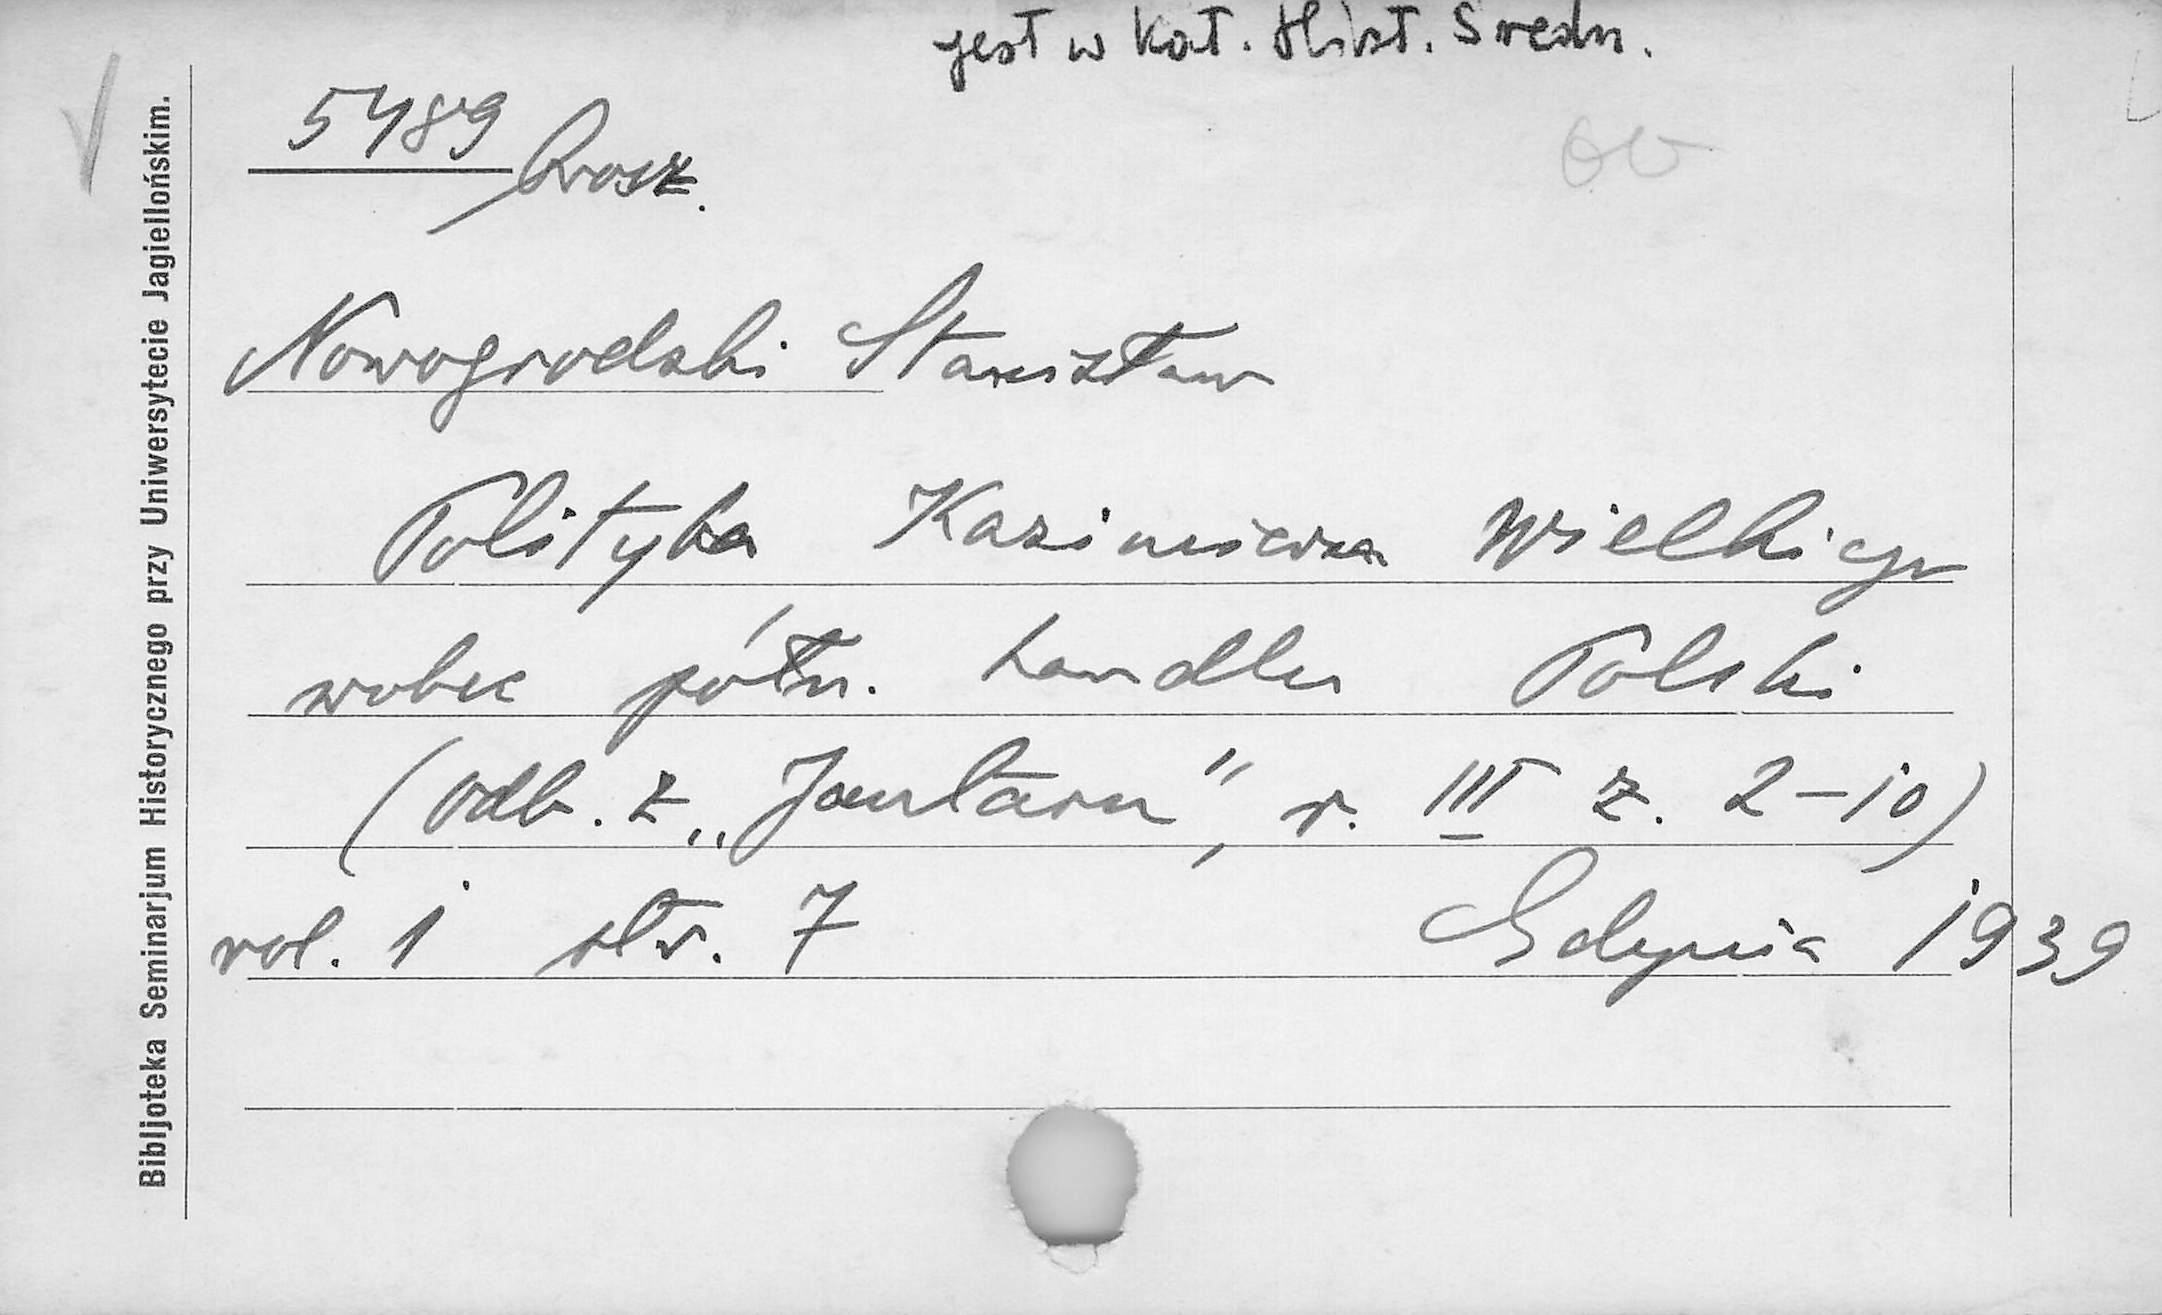 jest w Kat. Hist. Średn.
5489
Brosz.
Nowogrodzki Stanisław
Polityka Kazimierza Wielkiego
wobec półn. handlu Polski
(odb. z „Jantaru”, r. III z. 2-10)
vol. 1 str. 7 Gdynia 1939
Bibljoteka Seminarjum Historycznego przy Uniwersytecie Jagiellońskim.